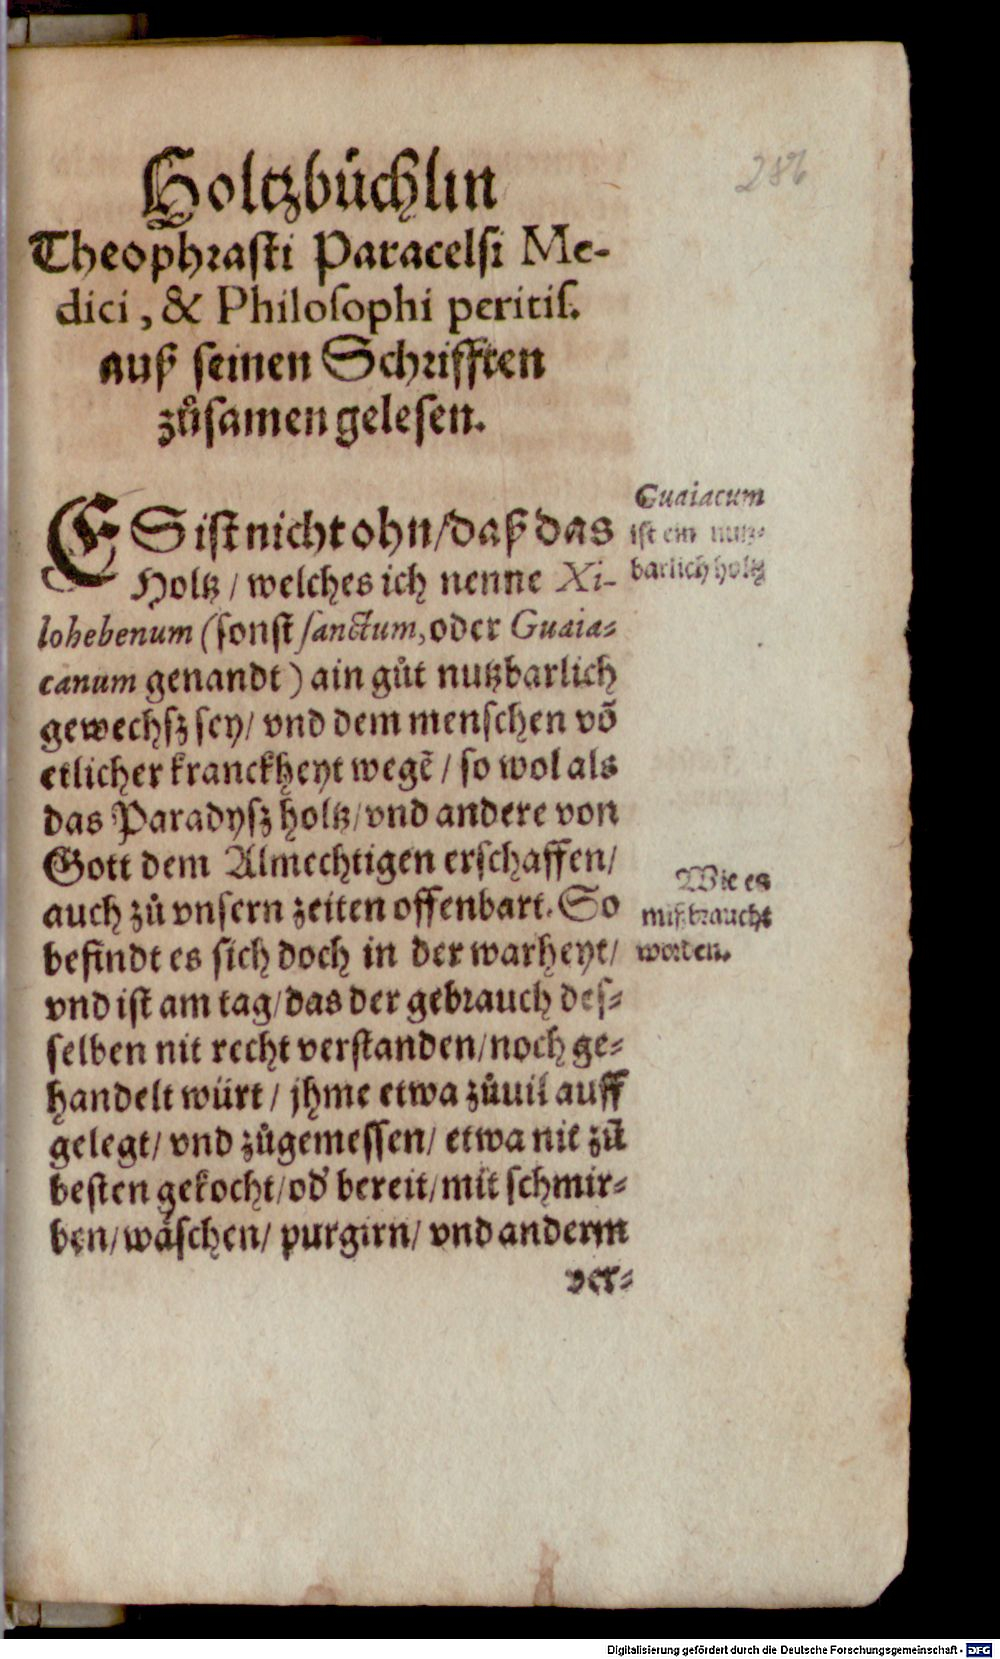 286
Holtzbüchlin
Theophrasti Paracelsi Me-
dici, & Philosophi peritiſ.
auß seinen Schrifften
zůsamen gelesen.
ES ist nicht ohn/daß das
Holtz / welches ich nenne Xi-
lohebenum (sonst ſanctum, oder Guaia-
canum genandt) ain gůt nutzbarlich
gewechſz sey/ vnd dem menschen võ
etlicher kranckheyt wegẽ / so wol als
das Paradyſz holtz/vnd andere von
Gott dem Almechtigen erschaffen/
auch zů vnsern zeiten offenbart. So
befindt es sich doch in der warheyt/
vnd ist am tag/das der gebrauch des-
selben nit recht verstanden/noch ge-
handelt würt / jhme etwa zůuil auff
gelegt/ vnd zůgemessen/ etwa nit zũ
besten gekocht/od' bereit/mit schmir-
ben/wäschen/ purgirn/ vnd anderm
ver-
Guaiacum
ist ein nutz-
barlich holtz
Wie es
mißbraucht
worden.
Digitalisierung gefördert durch die Deutsche Forschungsgemeinschaft - DFG